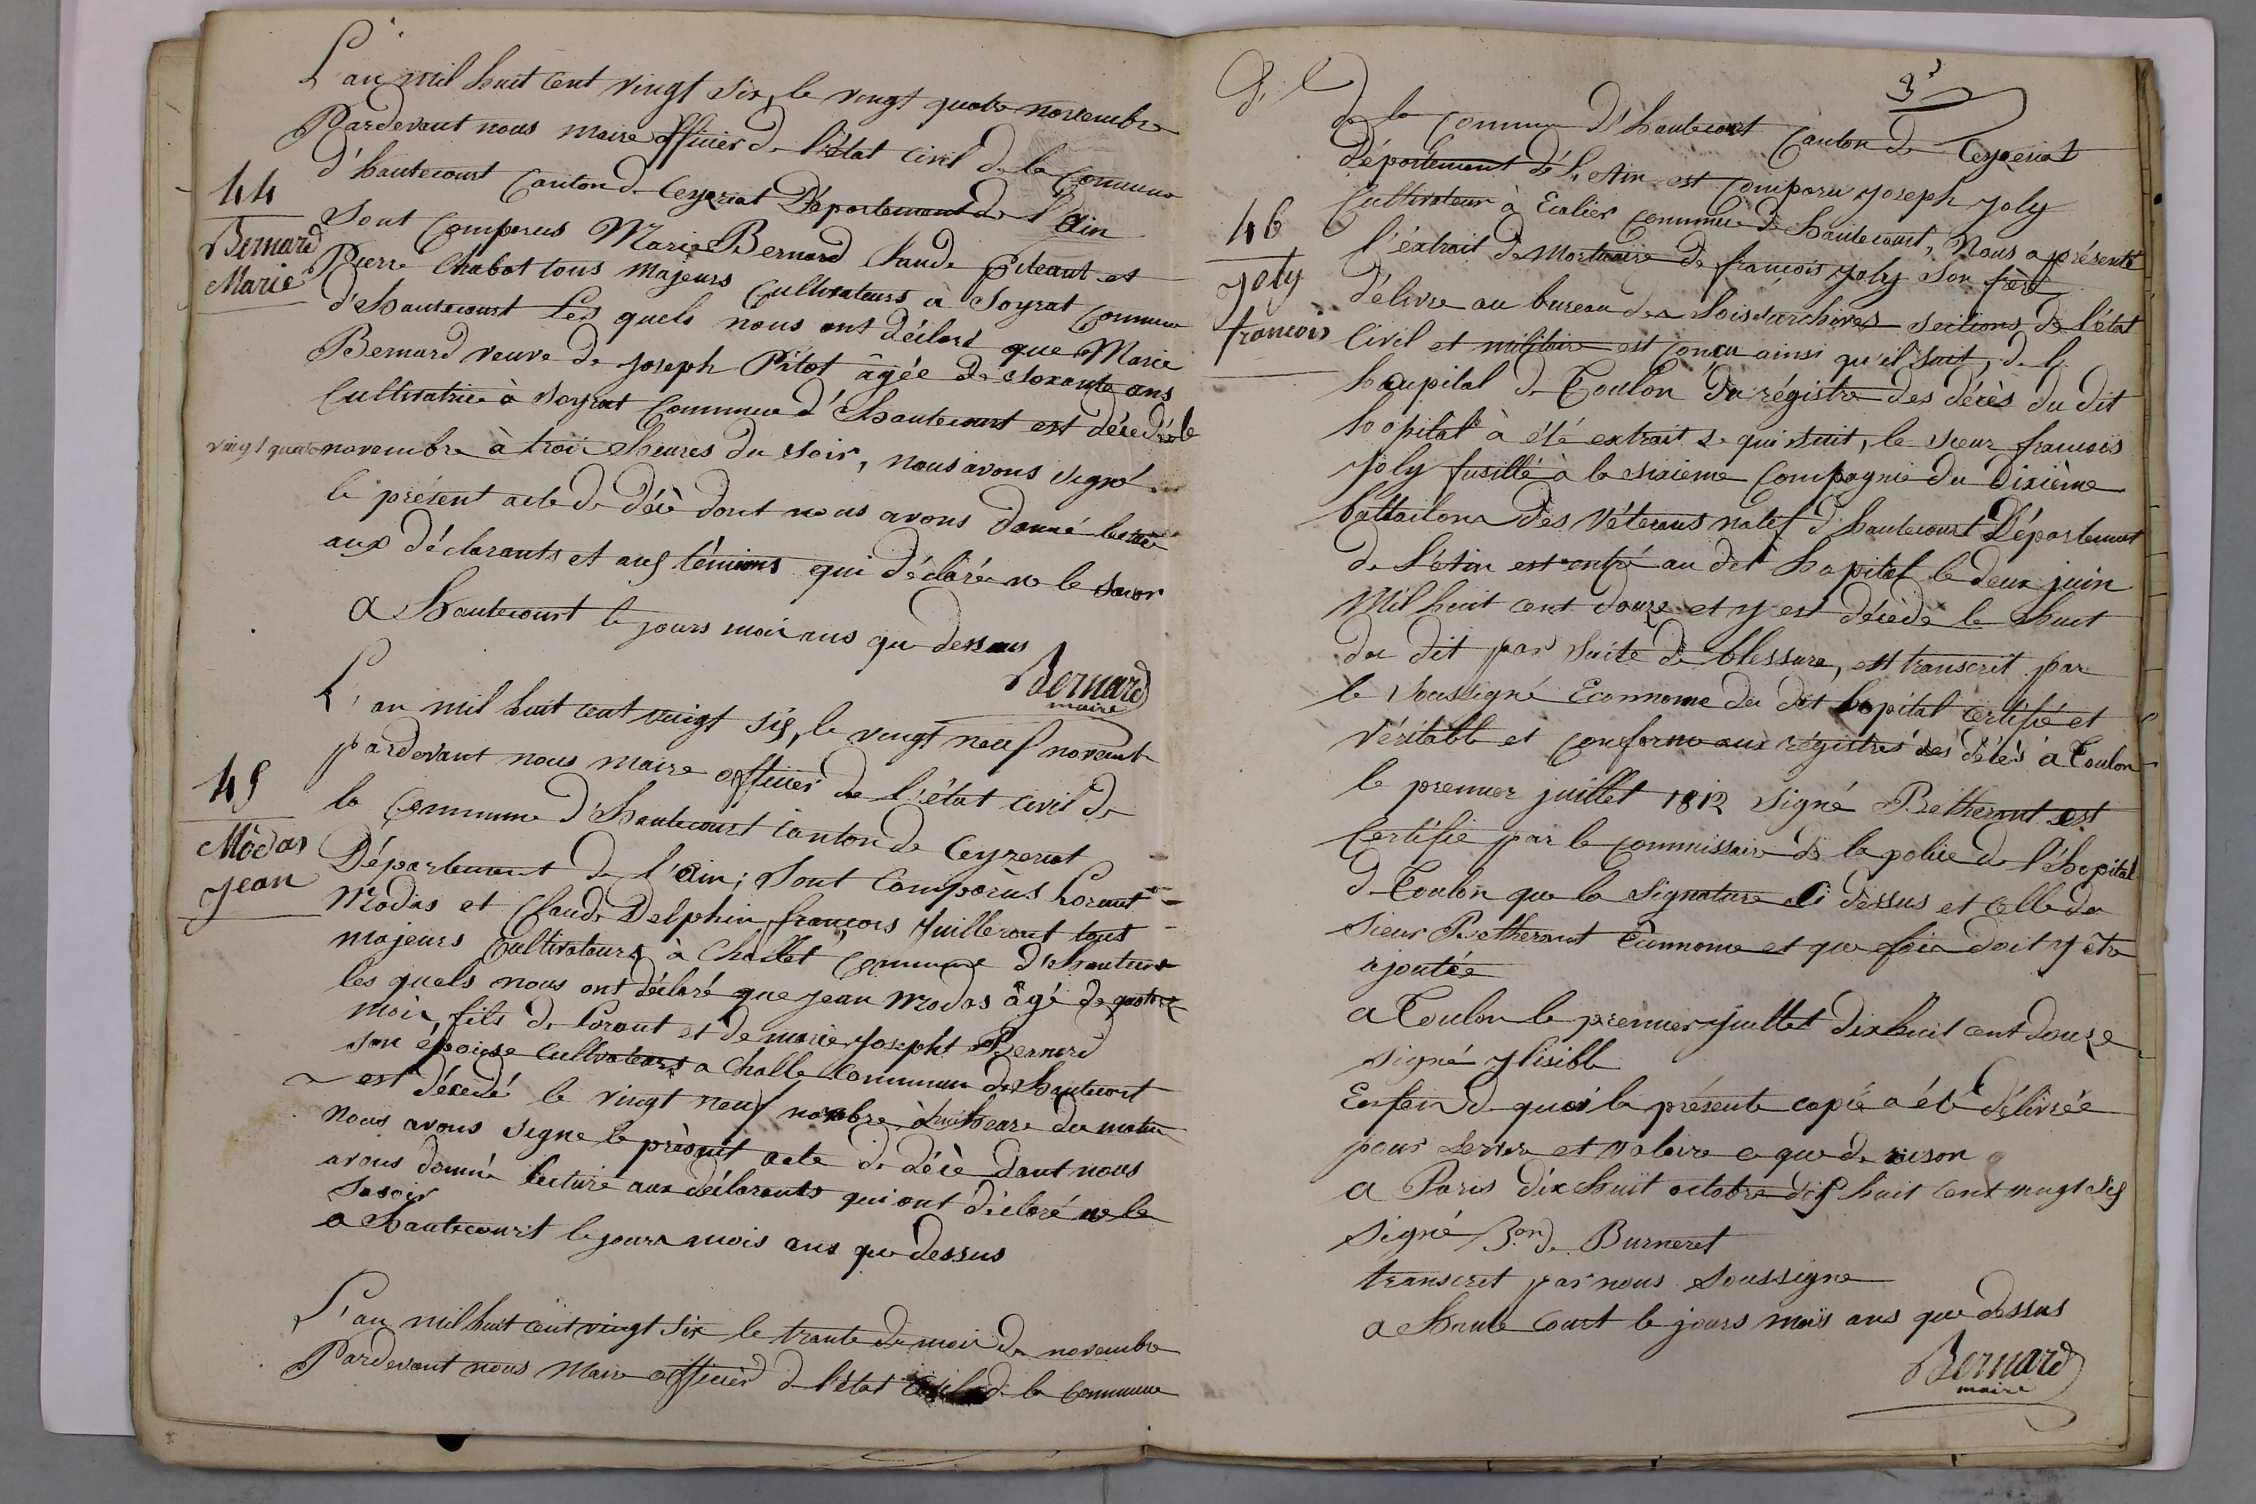 L'an mil huit cent vingt six, le vingt quatre novembre
Pardevant nous maire officier de l'état civil de la commune
d'hautecourt canton de Ceyzeriat Département de l'ain
44
Bernard
Marie
Sont comparus Marie Bernard Claude et
Pierre Chabot tous majeurs cultivateurs à Soyrat commune
d'hautecourt Les quels nous ont déclaré que Marie
Bernard veuve de joseph Pitot âgée de soxante ans
Cultivatrice à Soyrat commune d'hautecourt est décedé le
vingt quatre novembre à troi heures du soir, nous avons signé
le présent acte de décè dont nous avons donné lecture
aux déclarants et auf témions qui déclaré ne le savoir
a hautecourt le jours moi ans que dessus
Bernard
maire
L'an mil huit cent vingt six, le vingt neuf novemb
pardevant nous maire officier de l'état civil de
la commune d'hautecourt canton de Ceyzeriat
45
Modas
jean
Département de l'ain; sont comparus Lorant
Modas et Claude Delphin françois juillerant tous
majeurs cultivateurs à Challet commune d'hautecourt
les quels nous ont déclaré que jean Modas âgé de quatorze
moi, fils de Lorant et de marie josepht Bernard
son épouse cultivateurs a Challe commune de hautecourt
est décedé le vingt neuf novembre à huit heure du matin
nous avons signe le présent acte de décè dont nous
avons donné lecture aux déclarants qui ont déclaré ne le
savoir
a hautecourt le jours mois ans que dessus
L'an mil huit cent vingt six le trante du moi de novembre
Pardevant nous Maire officier de l'état civil de la commune
de la commune d'hautecourt canton de Ceyzeriat
Département de L'Ain est comparu joseph joly
Cultivateur à Ecolier commune de hautecourt, Nous a présenté
46
joly
francois
l'éxtrait de Mortuaire de françois joly son frère
délivre au bureau des Lois et archives sections de l'état
Civil et militaire est conçu ainsi qu'il suit, de l
haupital de Toulon du régistre des décès du dit
hopital à été extrait ce qui suit, le sieur francois
joly fusillé à la sixieme compagnie du dixième
battaillons des vétérans natif d'hautecourt Département
de L'Ain est entré au dit hopital le deux juin
Mil huit cent douze et y est décédé le huit
du dit par suite de blessure, est transcrit par
le soussigné Econnome du dit hopital certifié et
véritable et conforme aux régistres des décès à Toulon
le premier juillet 1812 signé Betherant est
certifie par le commissaire de la police de l'hopital
de Toulon que la signature ci dessus et celle du
sieur Betherant Econnome et que foi doit y être
ajoutée
a Toulon le premier juillet dix huit cent douze
signé ylisible
En foi de quoi la présente copie a été délivrée
pour servir et valoire ce que de raison
a Paris dix huit octobre dix huit cent vingt six
signé Bon de Burneret
transcrit par nous soussigne
a haute court le jours mois ans que dessus
Bernard
maire